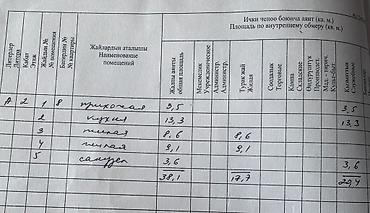 Ички ченөө боюнча аянт (кв. м.)
Площадь по внутреннему обмеру (кв. м.)
Литерлер
Литера
Кабат
Этаж
Жайдын №
№ помещения
Батирдин №
№ квартиры
Жайлардын аталышы
Наименование
помещений
Жалпы аянты
общая площадь
Мекемелик
Учрежденческие
Админстр.
Администр.
Турак жай
Жилая
Соодалык
Торговые
Кампа
Складские
Өндүрүштүк
Производст.
Мед. - сирич.
Кызматтык
Служебные
А 2 1 8 прихожая 3,5 3,5
2 кухня 13,3 13,3
3 жилая 8,6 8,6
4 жилая 9,1 9,1
5 санузел 3,6 3,6
38,1 17,7 20,4